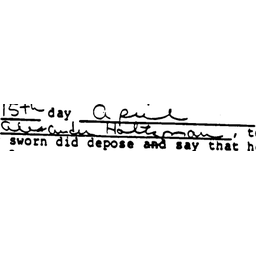 15th day April
Alexander Holtzman, t
sworn did depose and say that h